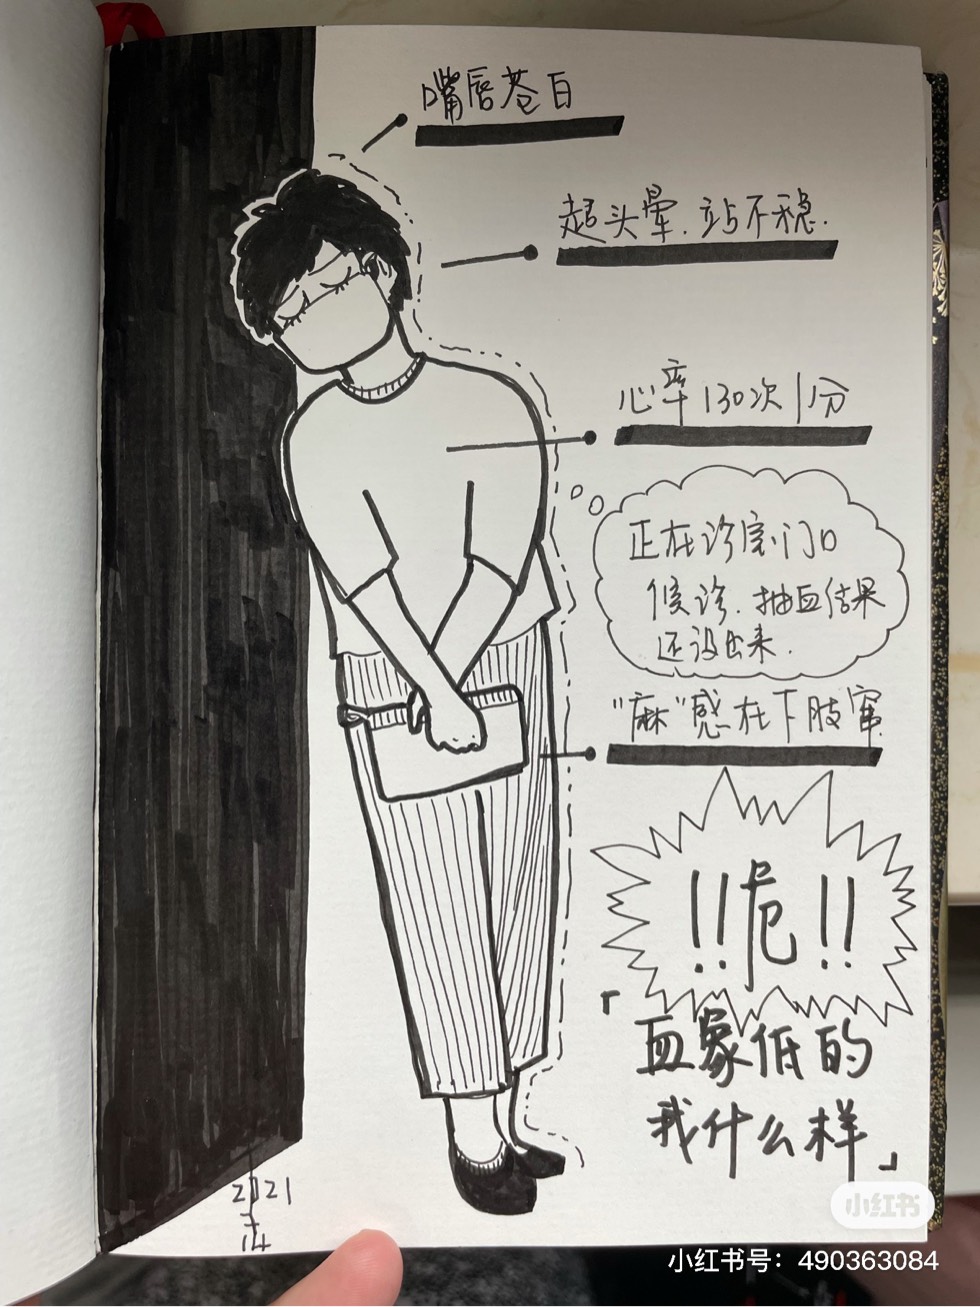 嘴唇苍白
超头晕.站不稳.
心率130次/分
正在诊室门口
候诊.抽血结果
还没出来.
"麻"感在下肢窜
!!危!!
「血象低的
我什么样」
2021
小红书
小红书号：490363084